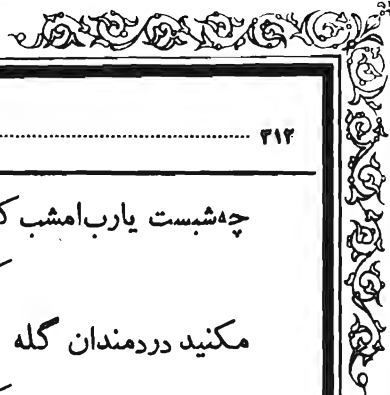 ۳۱۲
چه‌شبست یارب‌امشب
مکنید دردمندان گله